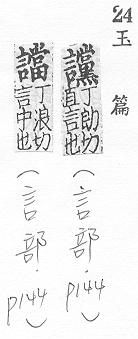 24
玉篇
讜丁朗切直言也(言部.P144)
譡丁浪切言中也(言部.P144)